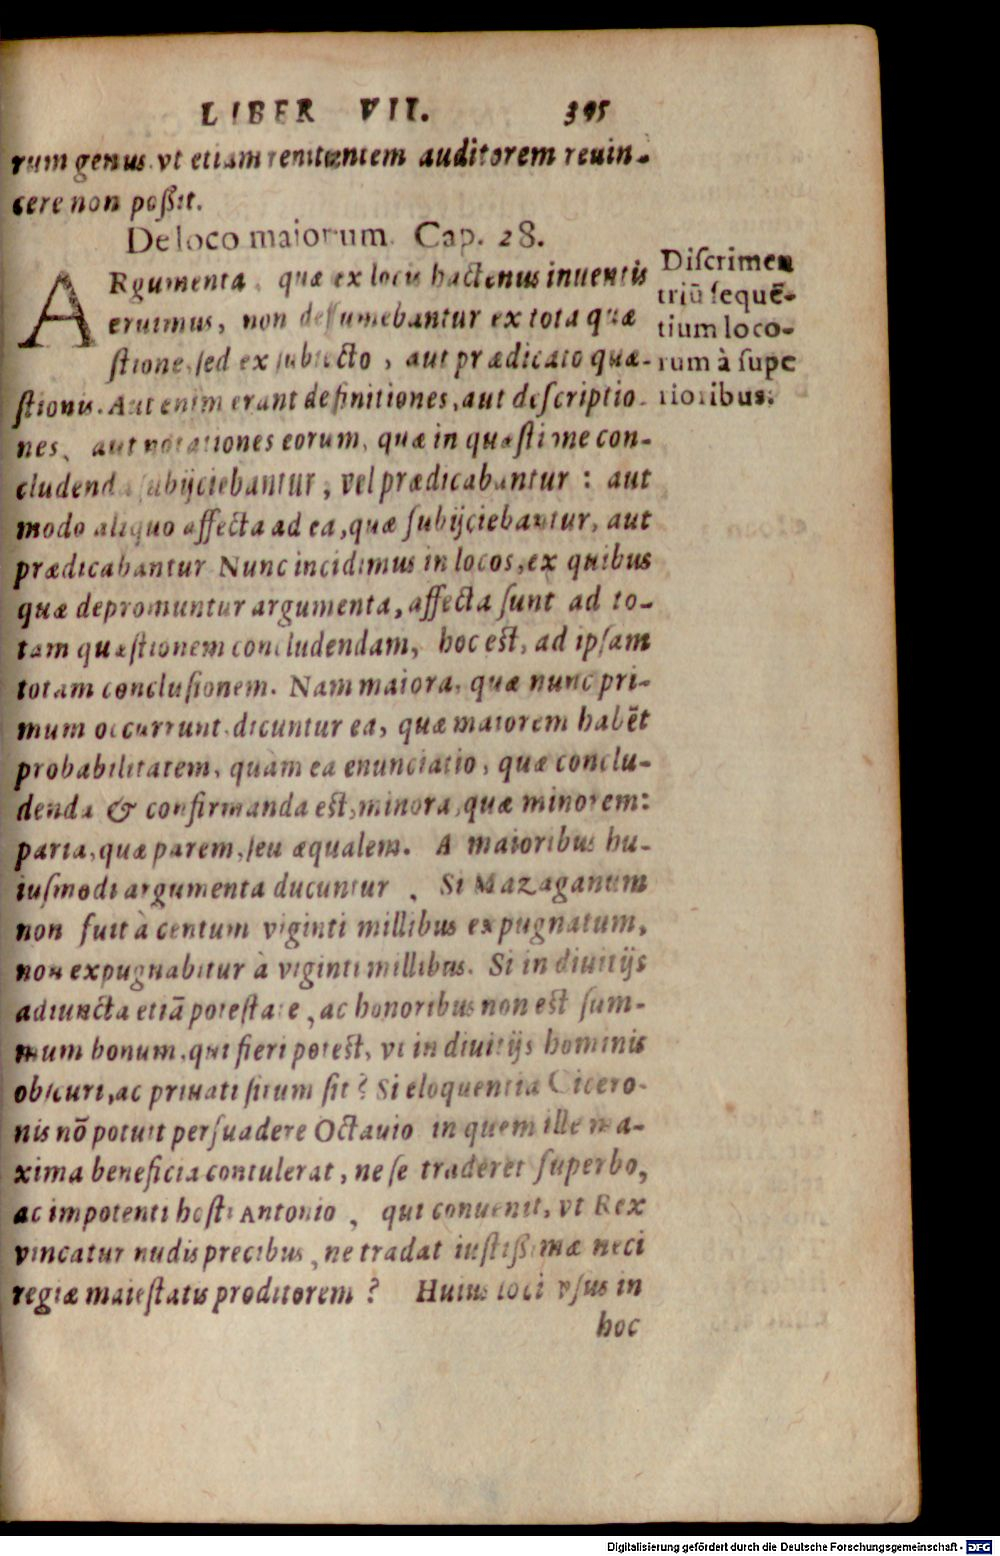 LIBER VII. 395
rum genus vt etiam renitentem auditorem reuin-
cere non poßit.
De loco maiorum. Cap. 28.
ARgumenta, quæ ex locis hactenus inuentis
eruimus, non desumebantur ex tota quæ
stione, sed ex subiecto, aut prædicato quæ-
stionis. Aut enim erant definitiones, aut descriptio-
nes, aut notationes eorum, quæ in quæstione con-
cludenda subijciebantur, vel prædicabantur: aut
modo aliquo affecta ad ea, quæ subijciebantur, aut
prædicabantur Nunc incidimus in locos, ex quibus
quæ depromuntur argumenta, affecta sunt ad to-
tam quæstionem concludendam, hoc est, ad ipsam
totam conclusionem. Nam maiora, quæ nunc pri-
mum occurrunt, dicuntur ea, quæ maiorem habēt
probabilitatem, quàm ea enunciatio, quæ conclu-
denda & confirmanda est, minora, quæ minorem:
paria, quæ parem, seu æqualem. A maioribus hu-
iusmodi argumenta ducuntur, Si Mazaganum
non fuit à centum viginti millibus expugnatum,
non expugnabitur à viginti millibus. Si in diuitijs
adiuncta etiā potestate, ac honoribus non est sum-
mum bonum, qui fieri potest, vt in diuitijs hominis
obscuri, ac priuati situm sit? Si eloquentia Cicero-
nis nō potuit persuadere Octauio in quem ille ma-
xima beneficia contulerat, ne se traderet superbo,
ac impotenti hosti Antonio, qui conuenit, vt Rex
vincatur nudis precibus, ne tradat iustißimæ neci
regiæ maiestatis proditorem? Huius loci vsus in
hoc
Discrimen
triū sequē-
tium loco-
rum à supe
rioribus.
Digitalisierung gefördert durch die Deutsche Forschungsgemeinschaft - DFG